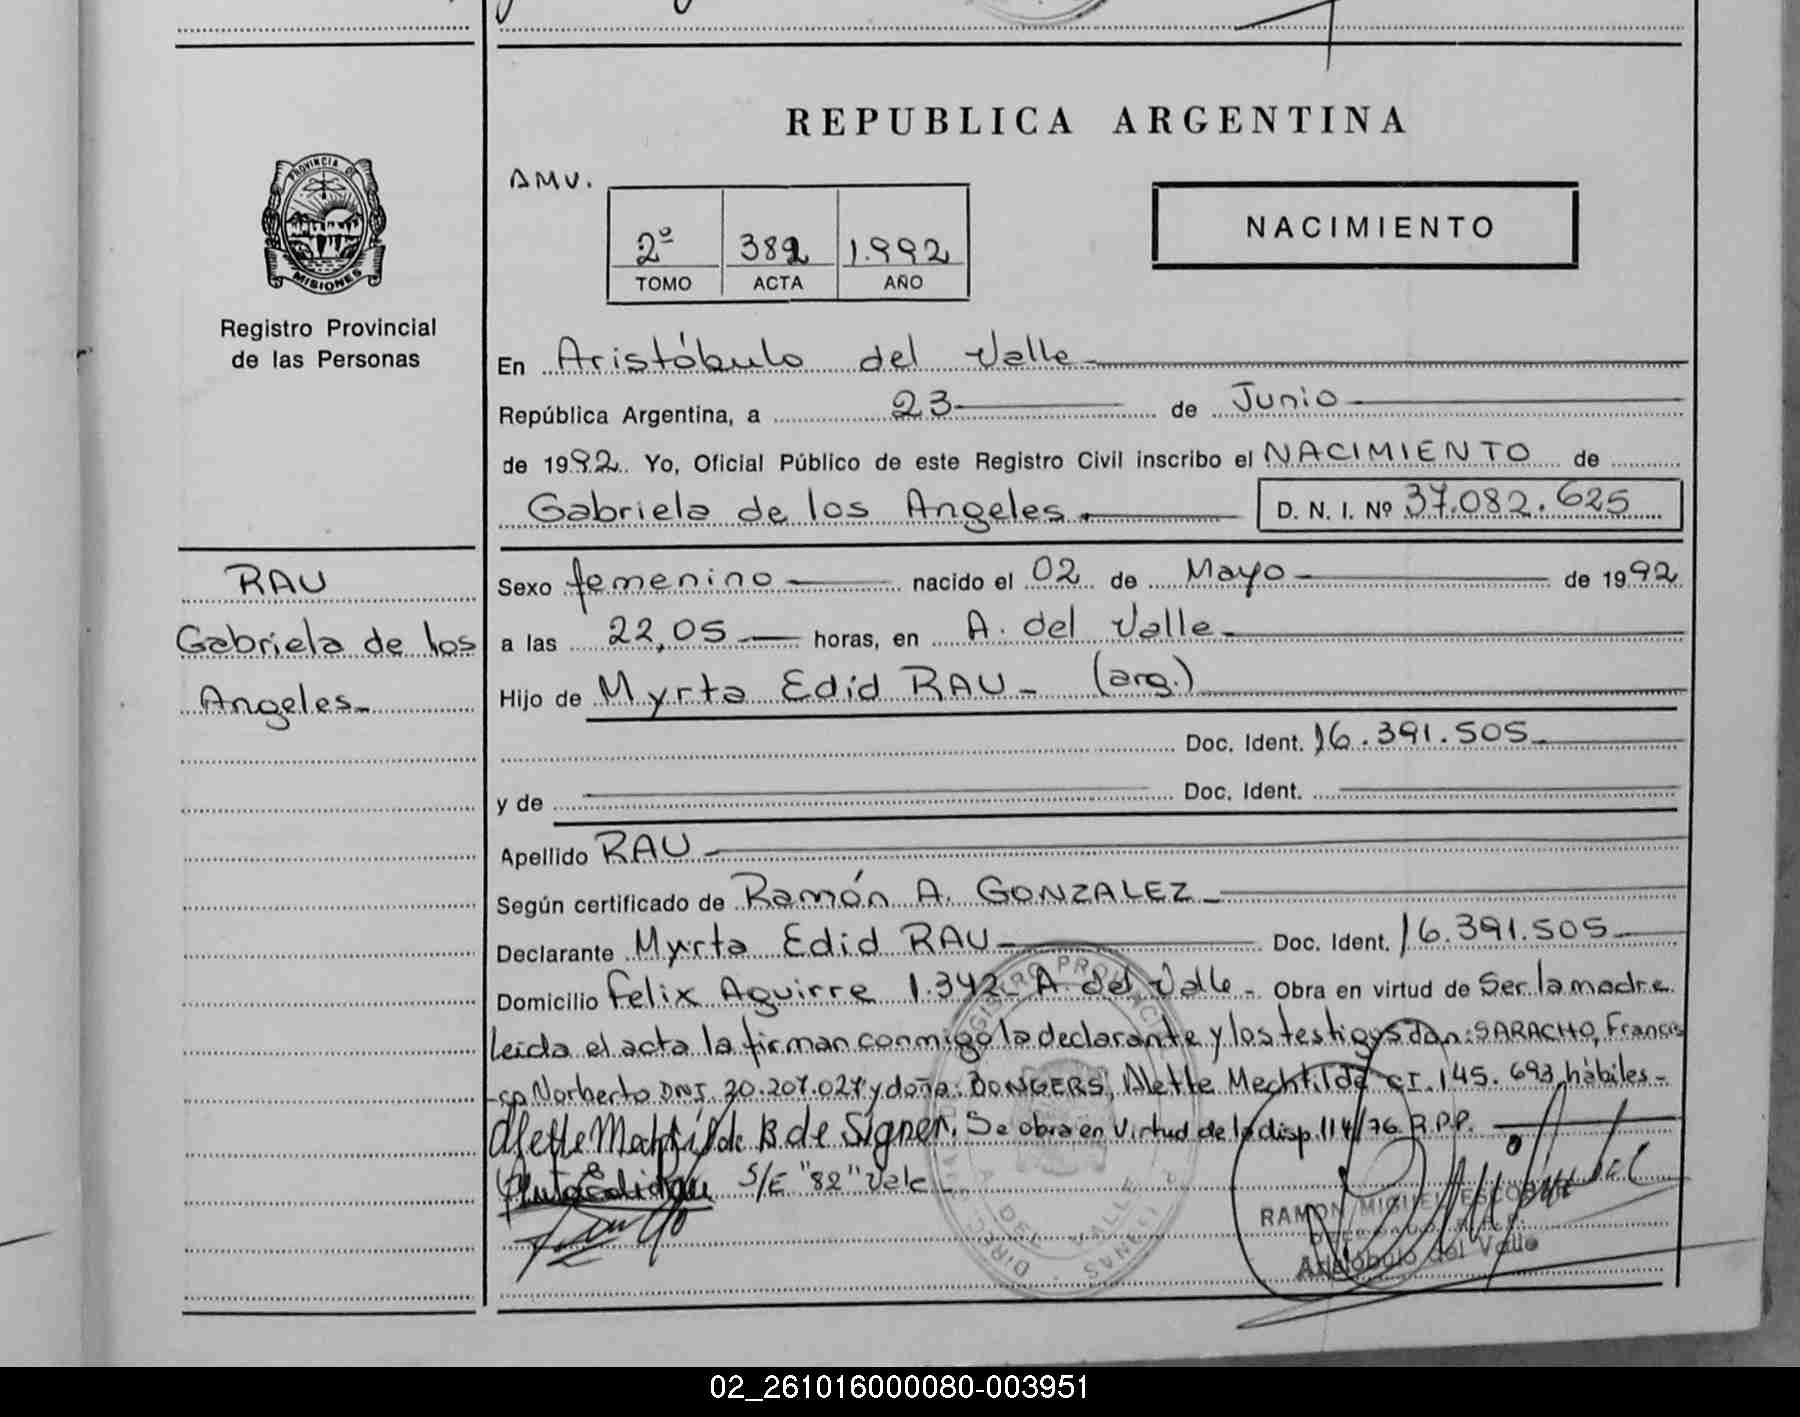 REPUBLICA ARGENTINA
AMV.
2º 382 1.992
TOMO ACTA AÑO
NACIMIENTO
PROVINCIA DE
MISIONES
Registro Provincial
de las Personas
En Aristóbulo del Valle
República Argentina, a 23 de Junio
de 1992. Yo, Oficial Público de este Registro Civil inscribo el NACIMIENTO de
Gabriela de los Angeles. D. N. I. Nº 37.082.625
RAU
Gabriela de los
Angeles
Sexo femenino nacido el 02 de Mayo de 1992
a las 22,05 horas, en A. del Valle
Hijo de Myrta Edid RAU (arg.)
Doc. Ident. 16.391.505
y de Doc. Ident.
Apellido RAU
Según certificado de Ramón A. GONZALEZ
Declarante Myrta Edid RAU Doc. Ident. 16.391.505
Domicilio Felix Aguirre 1.342 A. del Valle - Obra en virtud de Ser la madre
leida el acta la firman conmigo la declarante y los testigos don: SARACHO, Francis
-co Norberto DNI. 20.207.027 y doña: BONGERS, Alette Mechtilde CI. 145.693, hàbiles -
Alette Mechtilde B de Signer. Se obra en virtud de la disp. 114/76 R.P.P.
S/E "82" Vale
RAMON MIGUEL ESCOBAR
Aristóbulo del Valle
02_261016000080-003951